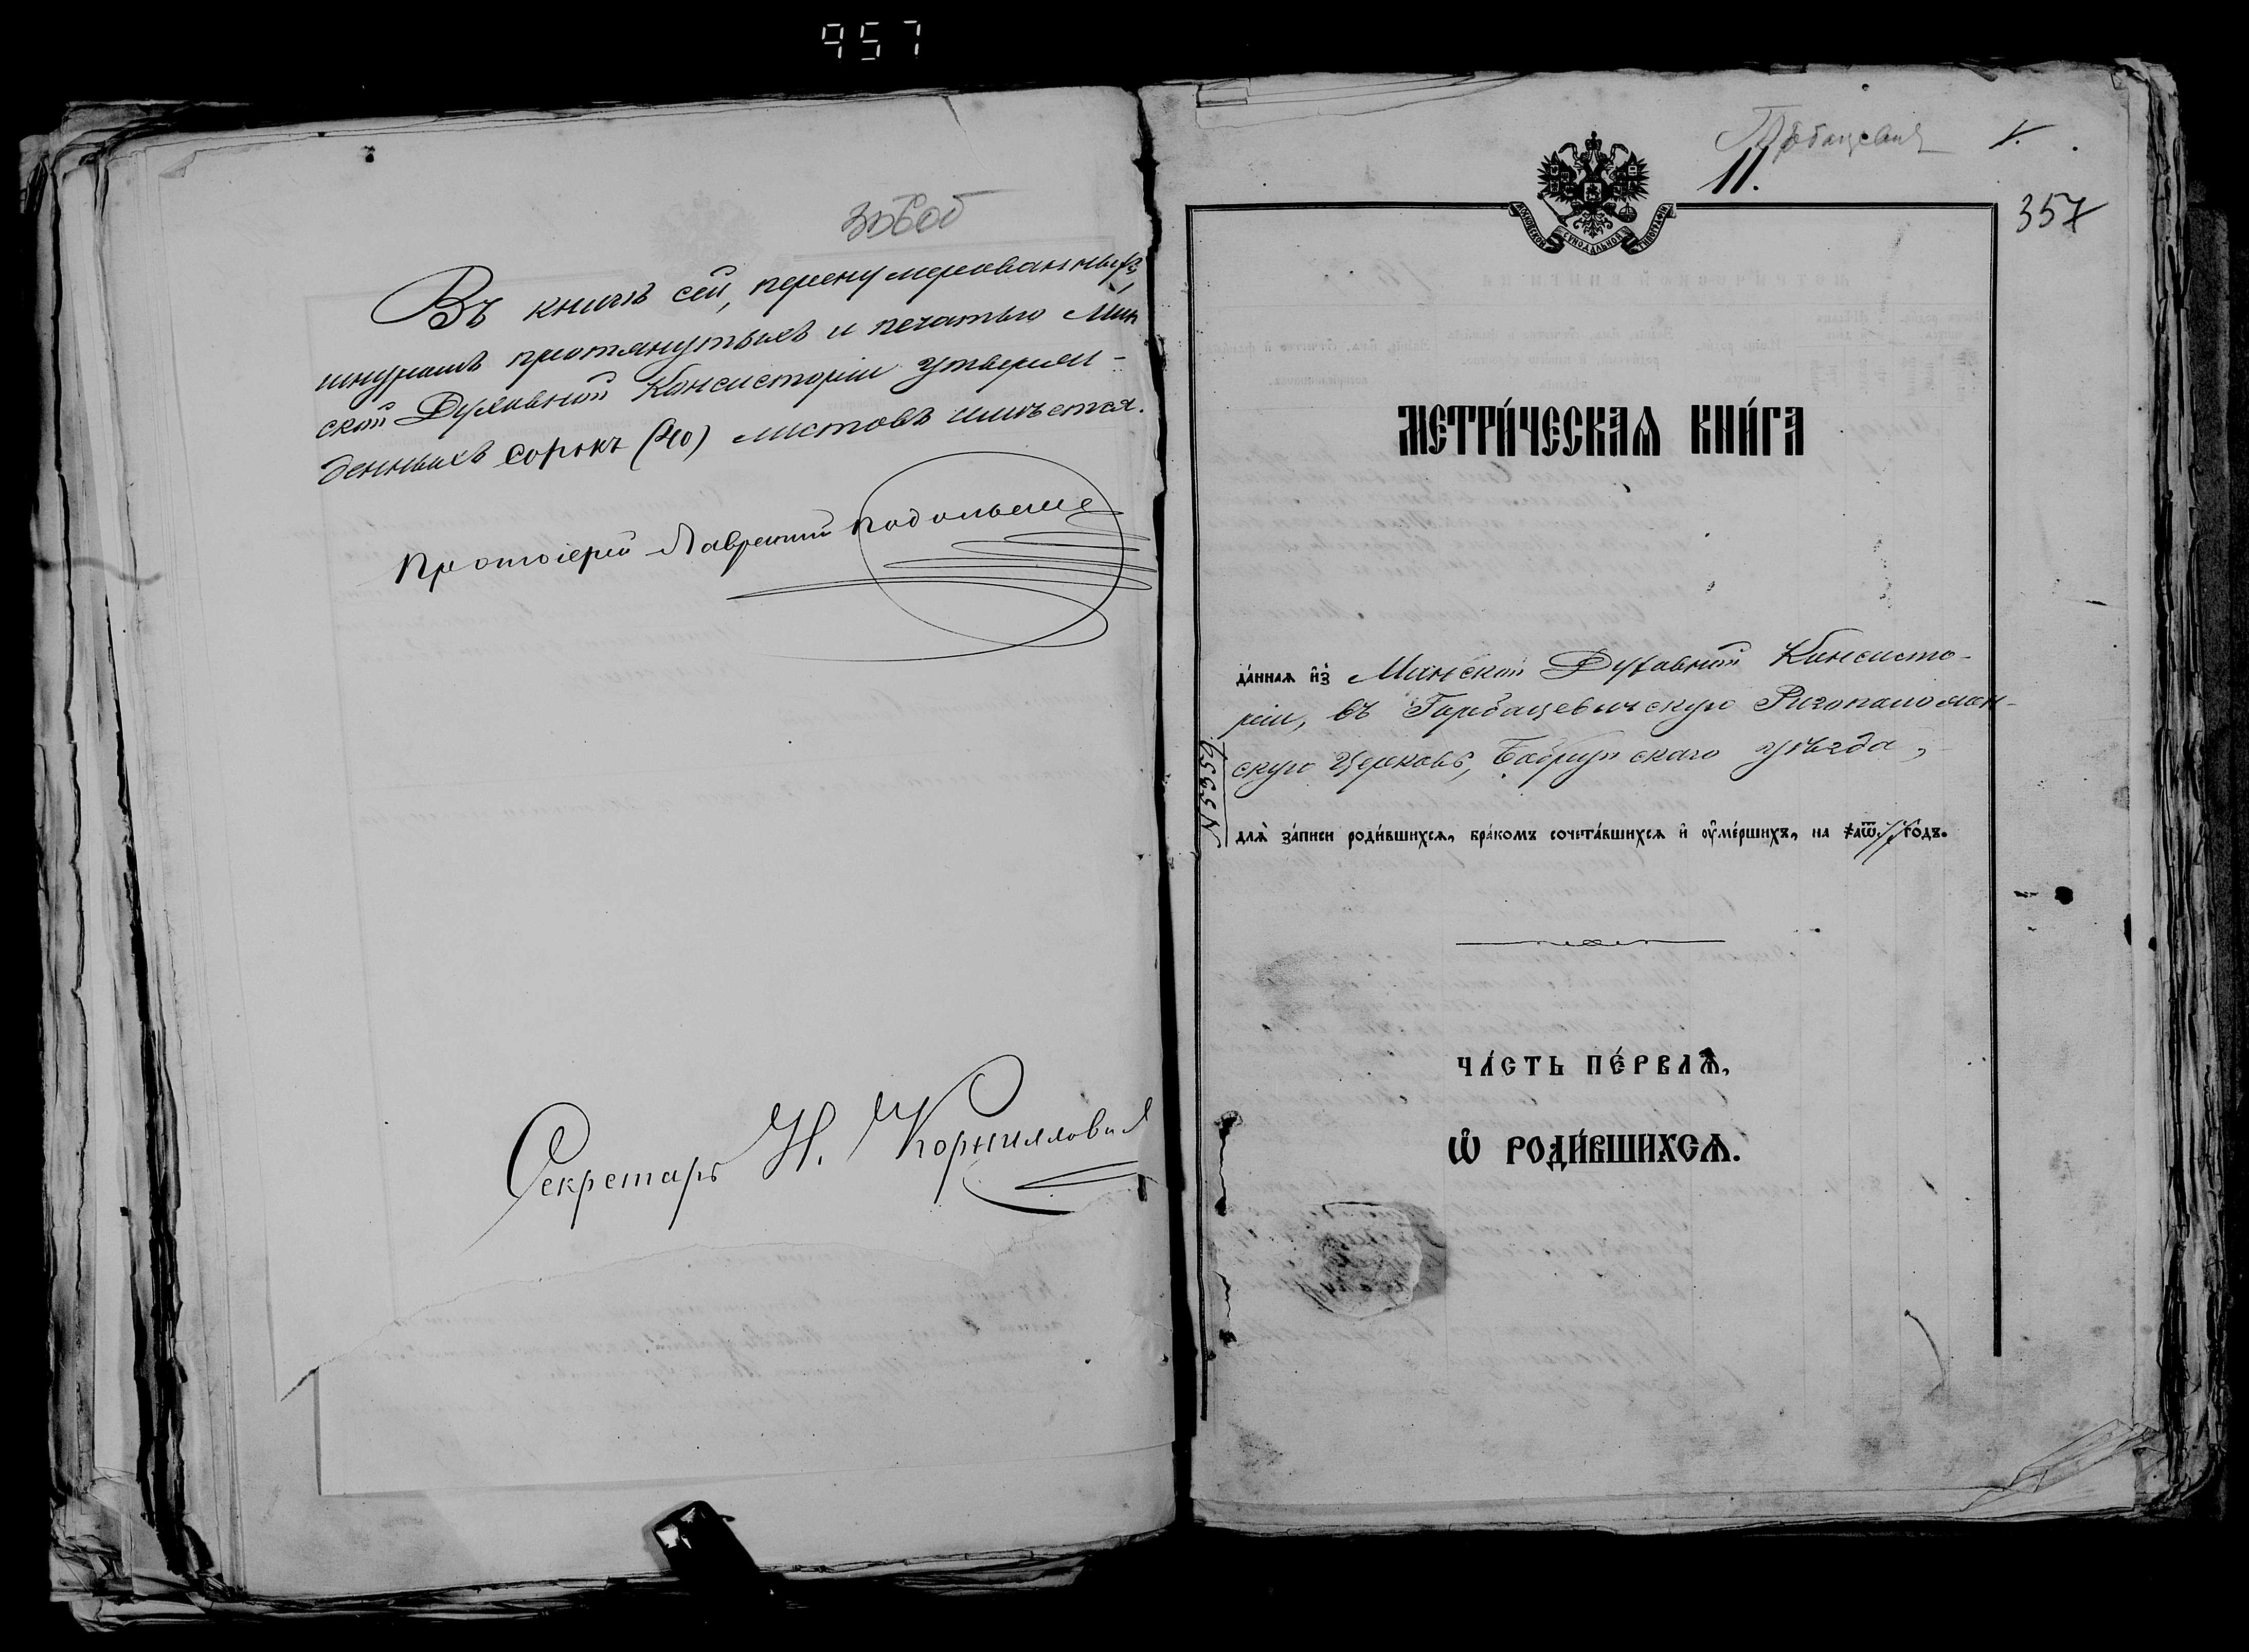 957
356об
Въ книгѣ сей, перенумерованныхъ,
шнуромъ протянутыхъ и печатью Мин
ской Духовной Консисторіи утверж-
денныхъ сорокъ (40) листовъ имѣется.
Протоіерей Лаврентій Подольскій
Секретарь Н. Корниллович
Горбацевичи
11.
357
МОСКОВСКОЙ СѴНОДАЛЬНОЙ ТИПОГРАФІИ
МЕТРИ́ЧЕСКАѦ КНИ́ГА
да́ннаѧ и҆з̾ Минской Духовной Консисто-
ріи, въ Горбацевичскую Ризоположен-
скую Церковь, Бобруйскаго уѣзда,
N 5359
длѧ̀ за́писи роди́вшихсѧ, бра́комъ сочета́вшихсѧ и҆ ᲂу҆ме́ршихъ, на го́дъ.
ЧА́СТЬ ПЕ́РВАѦ,
Ѡ҆ РОДИ́ВШИХСѦ.